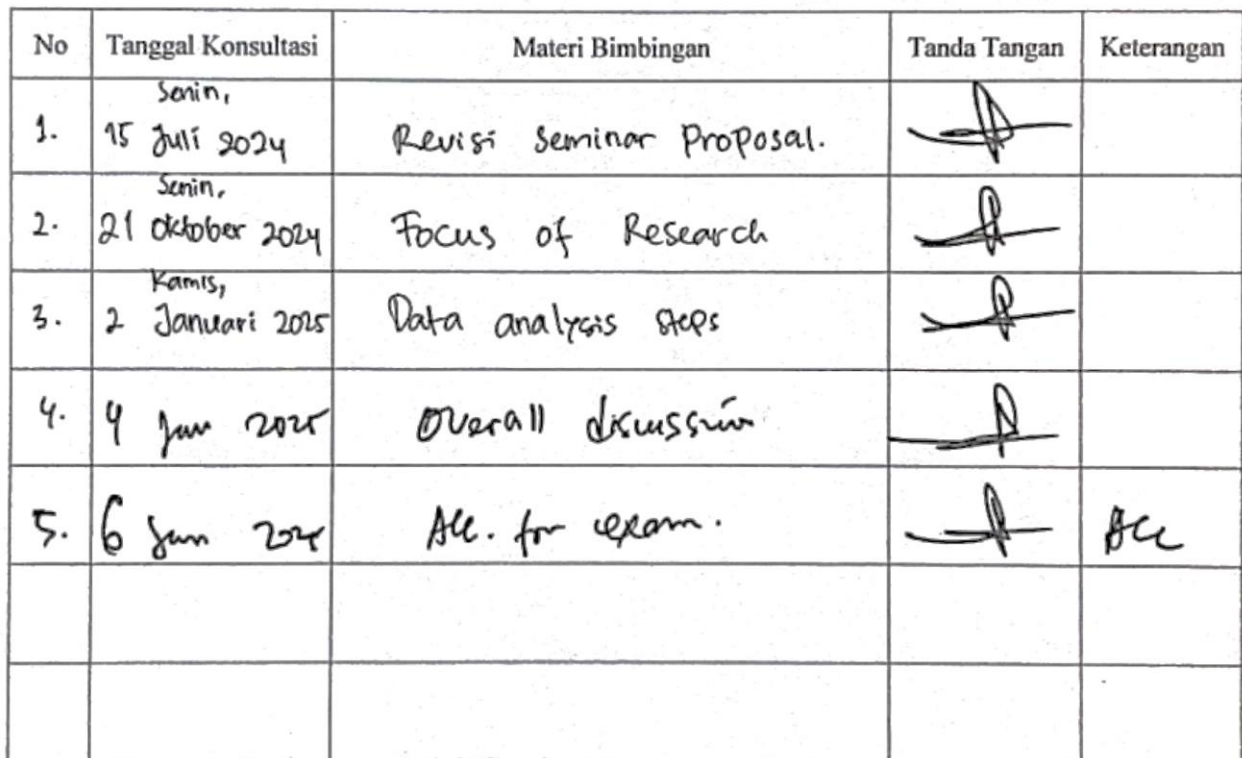 No Tanggal Konsultasi Materi Bimbingan Tanda Tangan Keterangan
Senin,
1. 15 Juli 2024 Revisi Seminar Proposal.
Senin,
2. 21 Oktober 2024 Focus of Research
Kamis,
3. 2 Januari 2025 Data analysis steps
4. 4 Jan 2025 Overall discussion
5. 6 Jan 2025 Acc. for exam. Acc